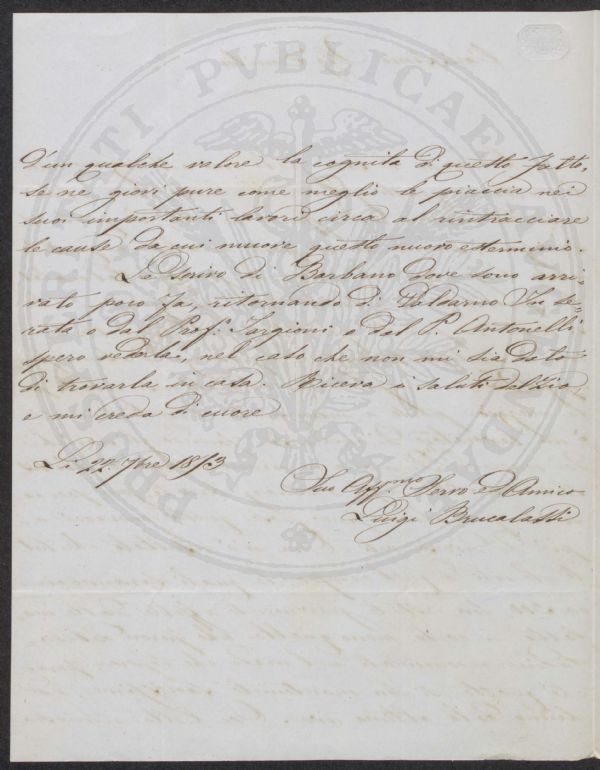 PROSPERITATI PVBLICAE AVGENDAE
d'un qualche valore la cognita di questo fatto,
se ne giovi pure come meglio le piaccia nei
suoi importanti lavori circa al rintracciare
le cause da cui muove questo nuovo esterminio.
Le scrivo di Barbano dove sono arri-
vato poco fa, ritornando di Valdarno. Sta se-
rata o dal Prof. Targioni o dal P. Antonelli
spero vederla, nel caso che non mi sia dato
di trovarla in casa. Riceva i saluti dello zio
e mi creda di cuore
Li 22. 7bre 1853
Suo Affmo. Servo ed Amico
Luigi Brucalassi